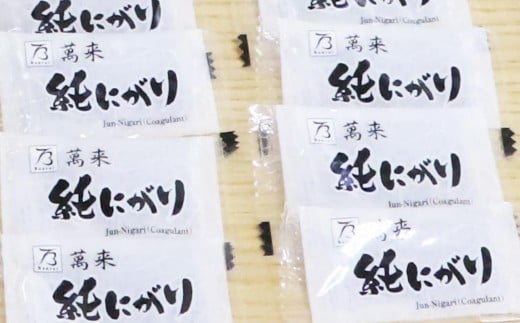 純にがり
Jun-Nigari(Coagulant)
萬来
純にがり
Jun-Nigari(Coagulant)
萬来
純にがり
Jun-Nigari(Coagulant)
萬来
純にがり
純にがり
萬来
純にがり
Jun-Nigari(Coagulant)
萬来
純にがり
Jun-Nigari(Coagulant)
萬来
純にがり
Jun-Nigari(Coagulant)